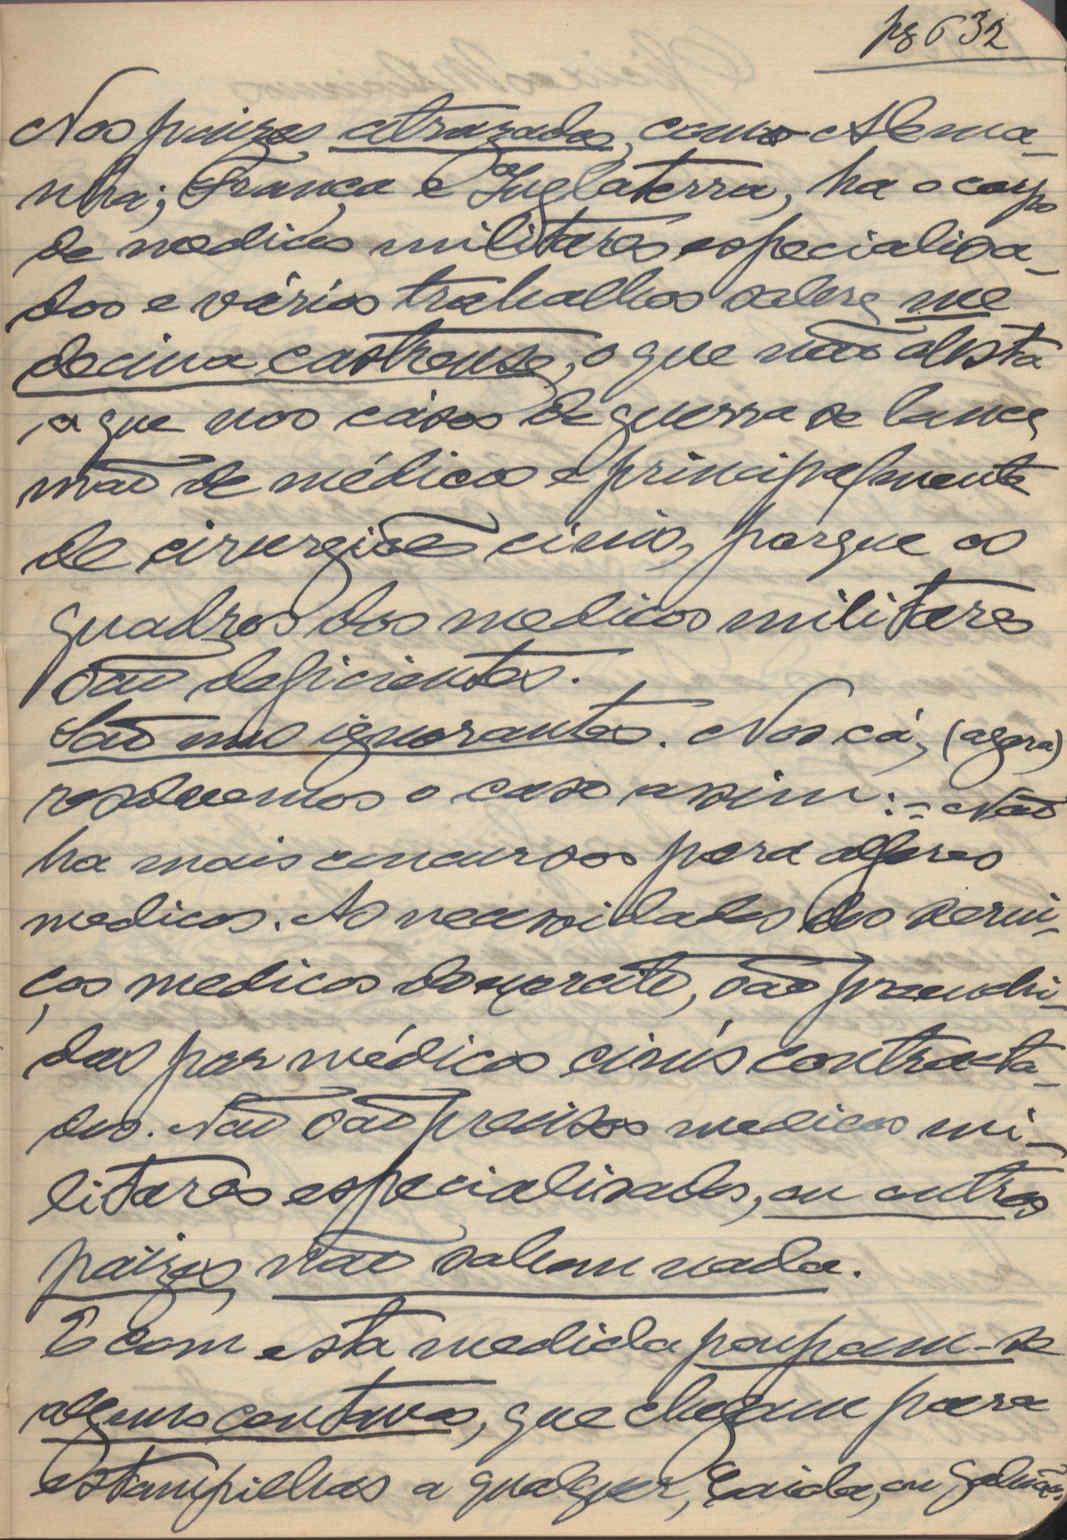 pg 632
Nos paizes atrazados, como Alema-
nha; França e Inglaterra, ha o corpo
de medicos militares especialisa-
dos e vários trabalhos sobre me
decina castrense, o que não obsta
a que nos cásos de guerra se lance
mão de médicos e principalmente
de cirurgiões civis, porque os
quadros dos medicos militares
são deficientes.
São uns ignorantes. Nos cá, (agora)
resolvemos o caso assim:- Não
ha mais concursos para alferes
medicos. As necessidades dos servi-
ços medicos do exercito, são preenchi-
das por médicos civis contracta-
dos. Não são precisos medicos mi-
litares especialisados, os outros
páizes, não sabem nada.
E com esta medida poupam-se
alguns centavos, que chegam para
estampilhas a qualquer, Caida, ou Galvão.